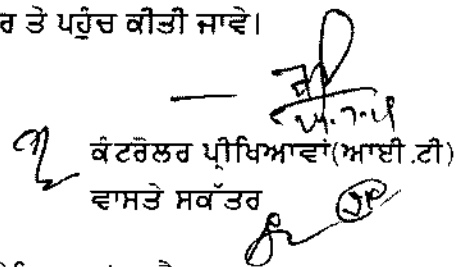 ਰ ਤੇ ਪਹੁੰਚ ਕੀਤੀ ਜਾਵੇ।
ਕੰਟਰੋਲਰ ਪ੍ਰੀਖਿਆਵਾਂ(ਆਈ.ਟੀ)
ਵਾਸਤੇ ਸਕੱਤਰ